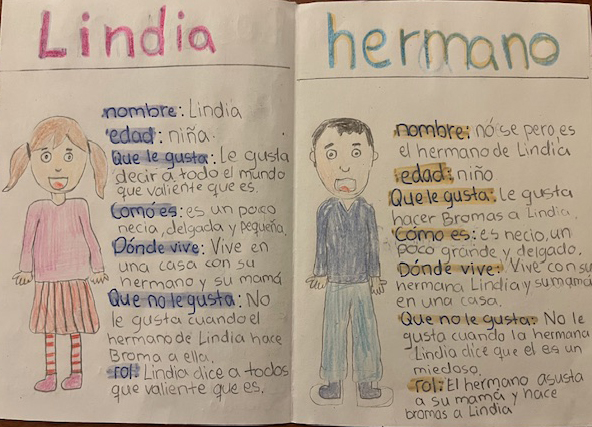 Lindia
nombre: Lindia
edad: niña.
Que le gusta: Le gusta
decir a todo el mundo
que valiente que es.
Cómo es: es un poco
necia, delgada y pequeña.
Dónde vive: Vive en
una casa con su
hermano y su mamá
Que no le gusta: No
le gusta cuando el
hermano de Lindia hace
Broma a ella.
rol: Lindia dice a todos
que valiente que es.
hermano
nombre: nó se pero es
el hermano de Lindia
edad: niño
Que le gusta: Le gusta
hacer Bromas a Lindia.
Cómo es: es necio, un
poco grande y delgado.
Dónde vive: Vive con su
hermana Lindia y su mamá
en una casa.
Que no le gusta: No le
gusta cuando la hermana
Lindia dice que el es un
miedoso.
rol: El hermano asusta
a su mamá y hace
bromas a Lindia